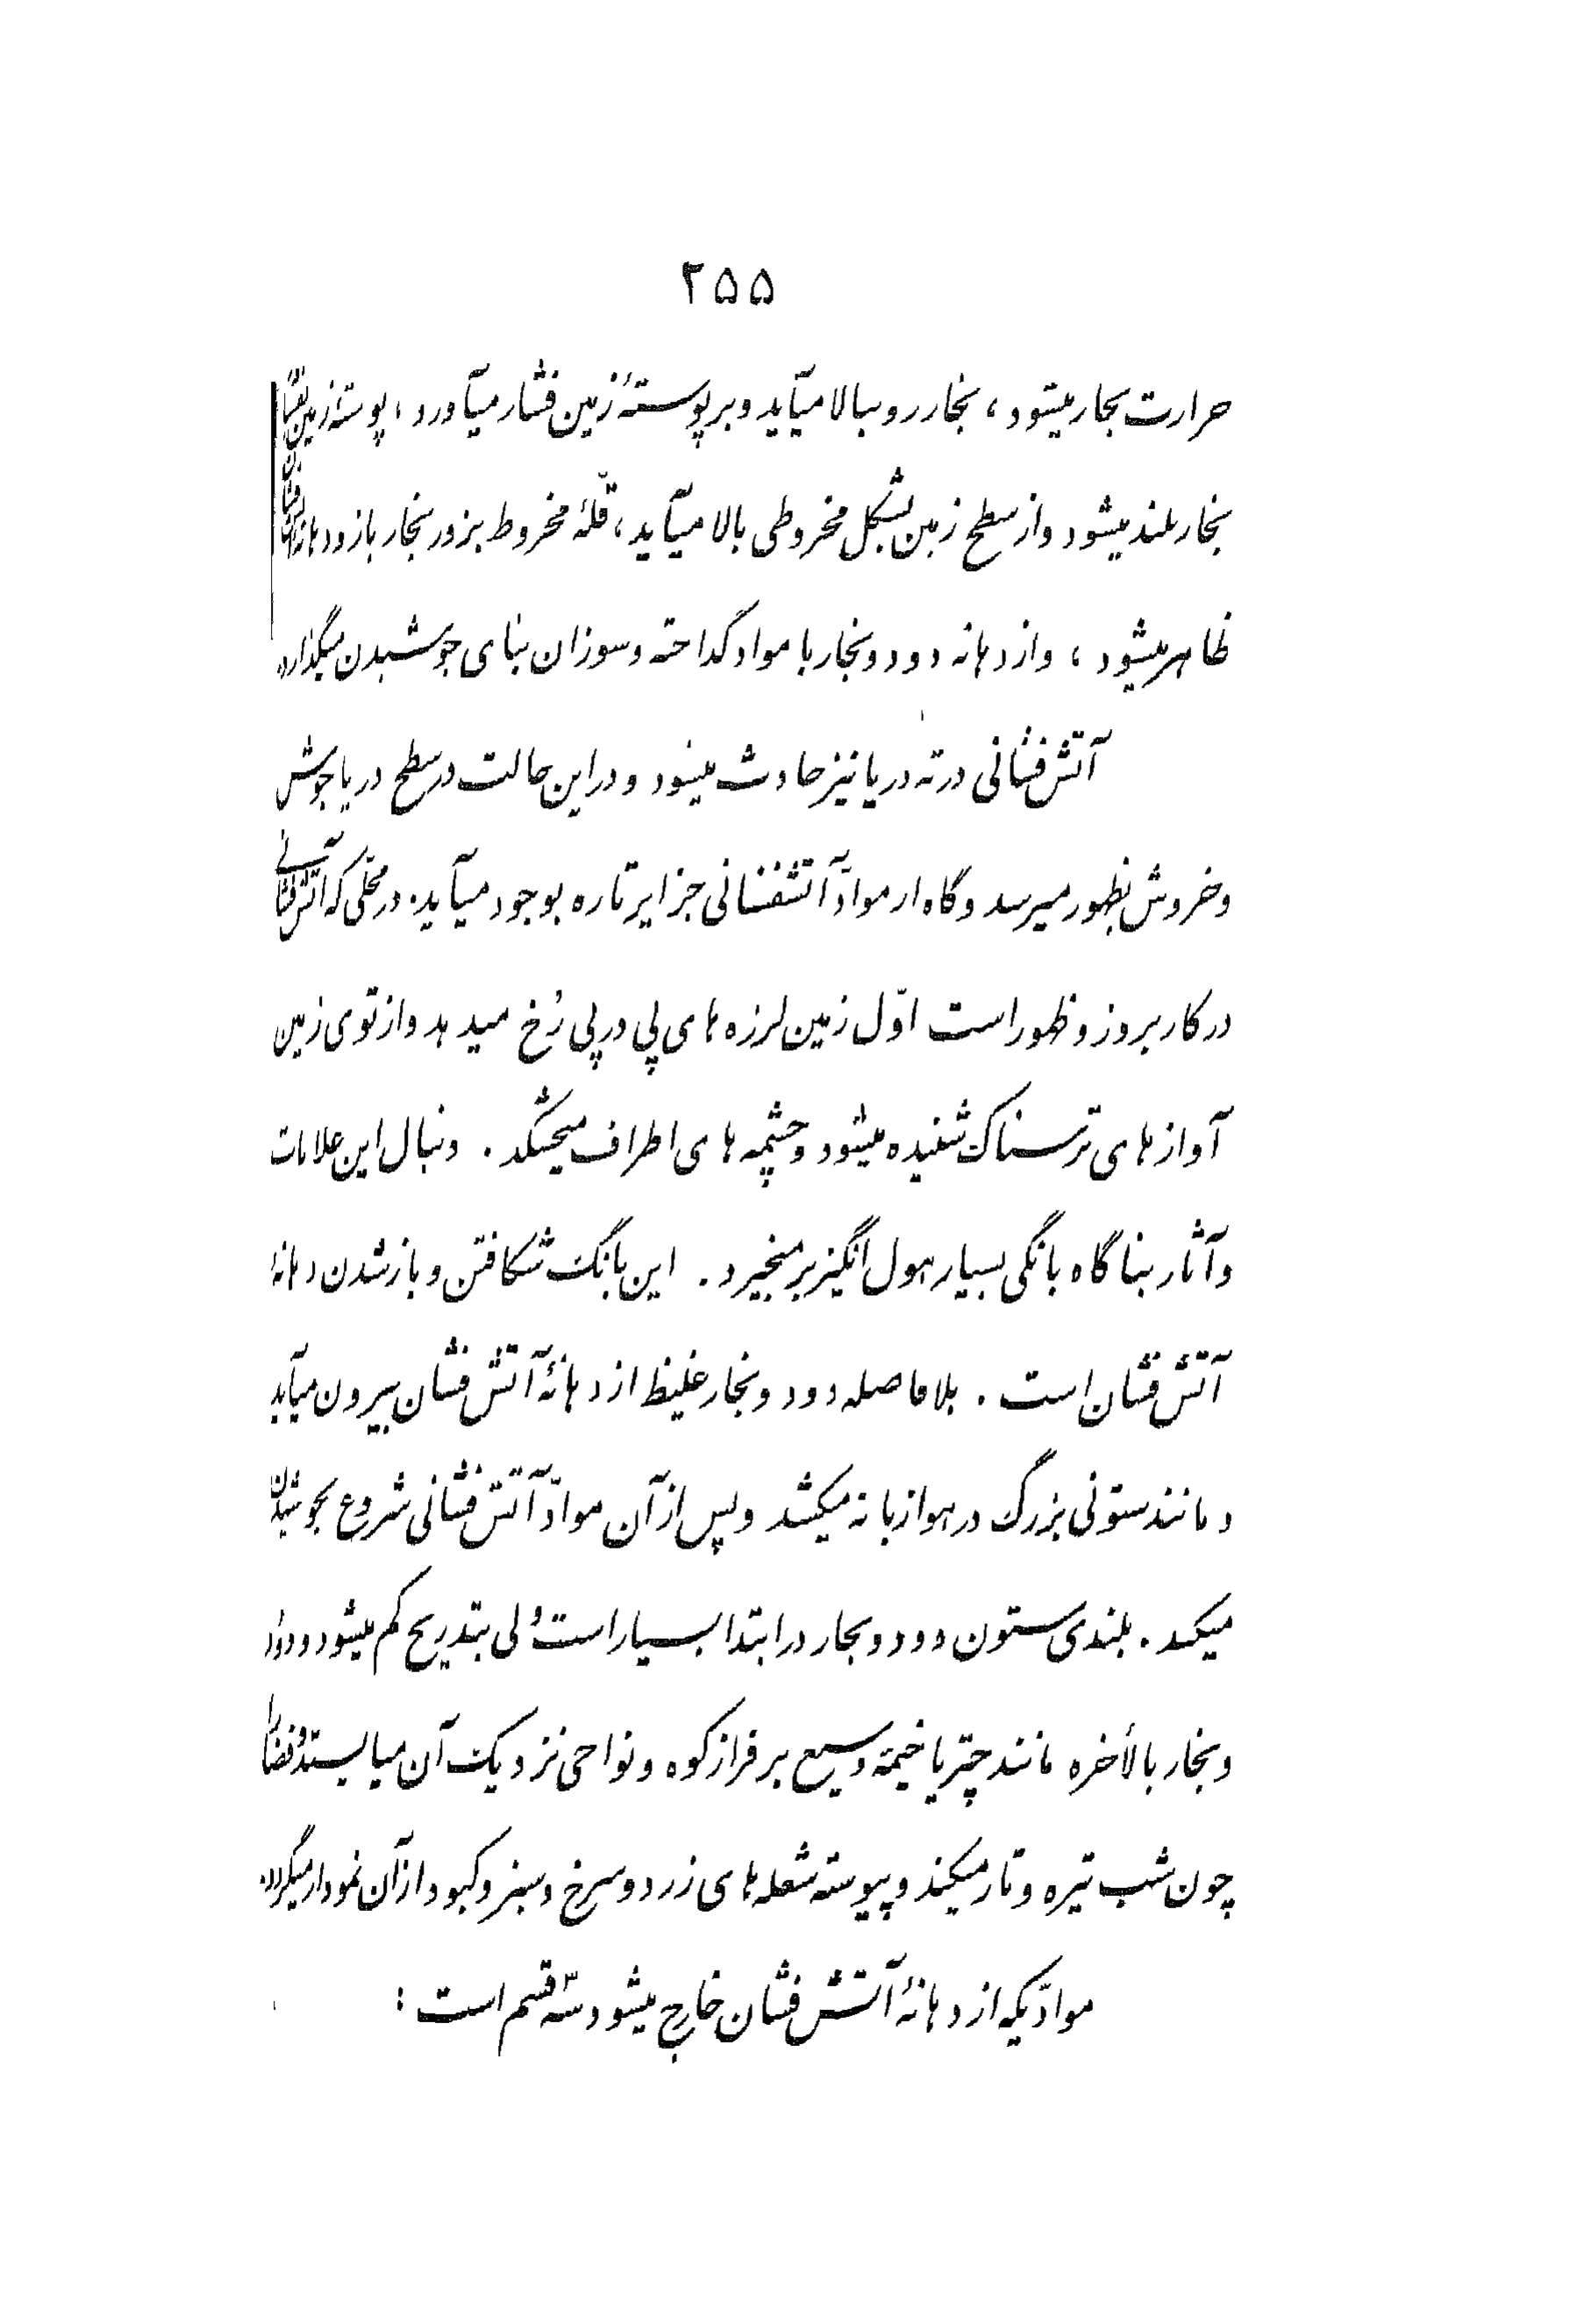 ۲۵۵
حرارت بخار میشود، بخار رو ببالا میآید و بر پوستهٔ زمین فشار میآورد، پوستهٔ زمین بفشار
بخار بلند میشود و از سطح زمین بشکل مخروطی بالا میآید، قلّهٔ مخروط بزور بخار باز و دهانهٔ
ظاهر میشود، و از دهانه دود و بخار با مواد گداخته و سوزان بنای جوشیدن میگذارد.
آتش فشانی در ته دریا نیز حادث میشود و در این حالت در سطح دریا جوش
و خروش بظهور میرسد و گاه از موادّ آتشفشانی جزایر تازه بوجود میآید. در محلّی که آتش فشانی
در کار بروز و ظهور است اوّل زمین لرزه های پی در پی رُخ میدهد و از توی زمین
آوازهای ترسناک شنیده میشود و چشمه های اطراف میخشکد. دنبال این علامات
و آثار بناگاه بانگی بسیار هول انگیز برمیخیزد. این بانگ شکافتن و باز شدن دهانهٔ
آتش فشان است. بلافاصله دود و بخار غلیظ از دهانهٔ آتش فشان بیرون میآید
و مانند ستونی بزرگ در هوا زبانه میکشد و پس از آن موادّ آتش فشانی شروع بجوشیدن
میکند. بلندی ستون دود و بخار در ابتدا بسیار است ولی بتدریج کم میشود و دود
و بخار بالأخره مانند چتر یا خیمهٔ وسیع بر فراز کوه و نواحی نزدیک آن میایستد و فضا را
چون شب تیره و تار میکند و پیوسته شعله های زرد و سرخ و سبز و کبود از آن نمودار میگردد.
موادّیکه از دهانهٔ آتش فشان خارج میشود سه قسم است: